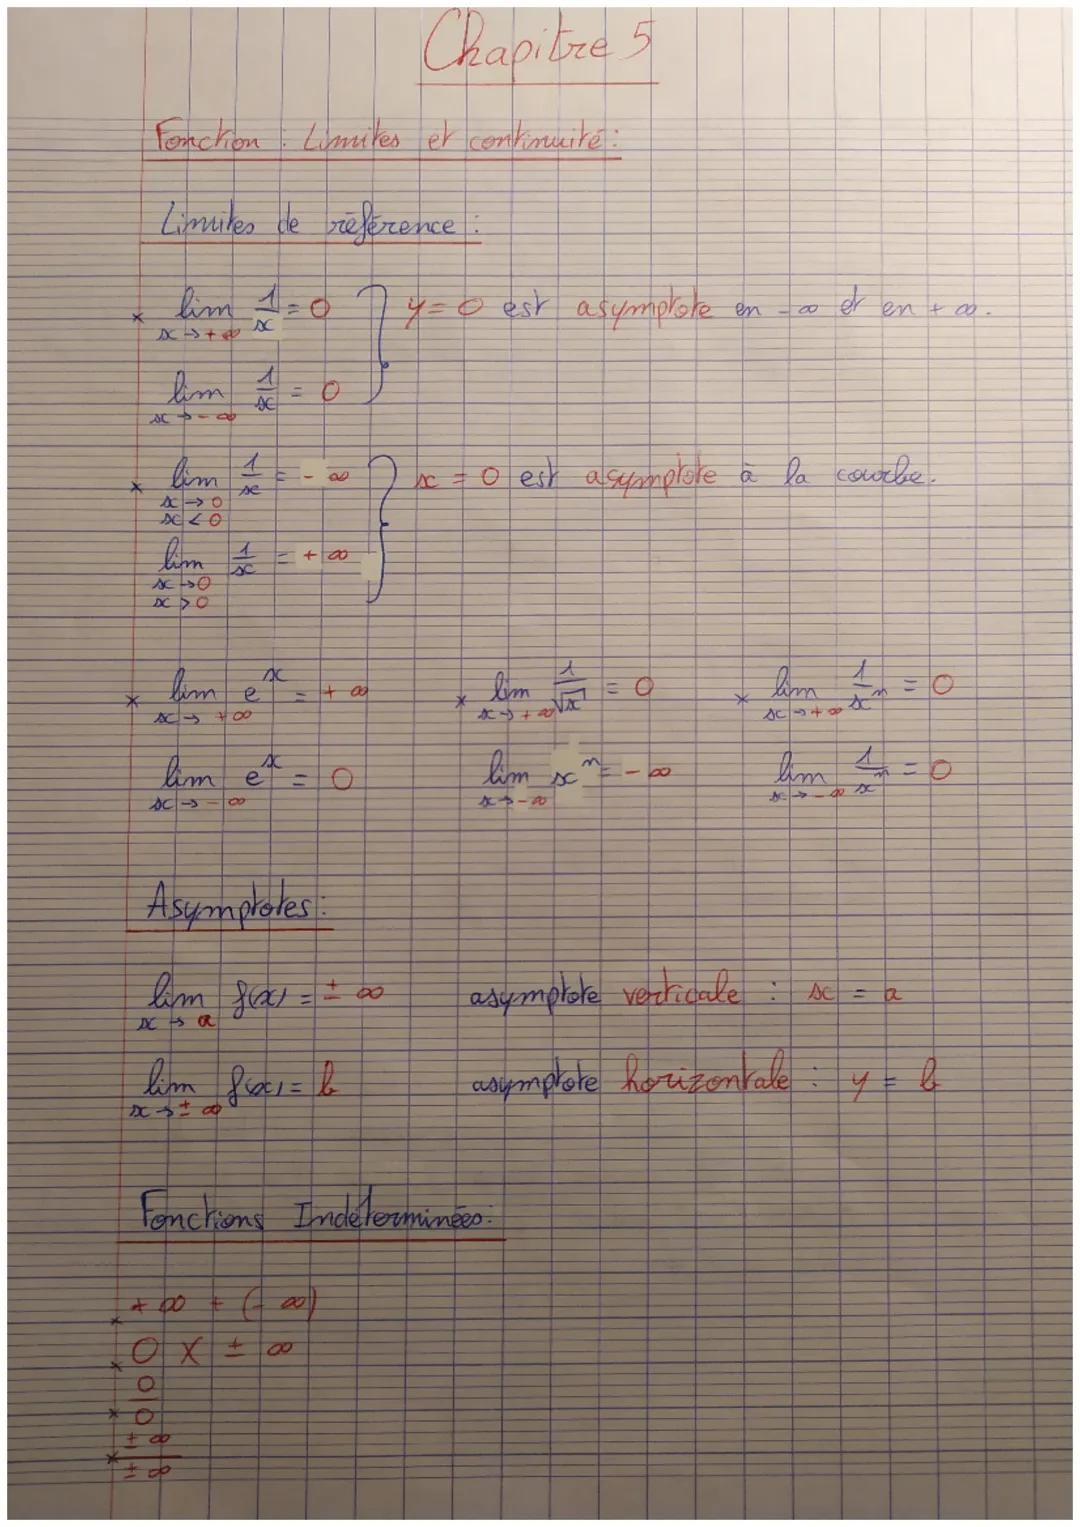 Chapitre 5
Fonction : Limites et continuité :
Limites de référence :
× lim x→+∞ 1/x = 0 } y = 0 est asymptote en -∞ et en +∞.
lim x→-∞ 1/x = 0
× lim x→0 x<0 1/x = -∞ } x = 0 est asymptote à la courbe.
lim x→0 x>0 1/x = +∞
× lim x→+∞ e^x = +∞ × lim x→+∞ 1/√x = 0 × lim x→+∞ 1/x^n = 0
lim x→-∞ e^x = 0 lim x→-∞ x^n = -∞ lim x→-∞ 1/x^n = 0
Asymptotes :
lim x→a f(x) = ±∞ asymptote verticale : x = a
lim x→±∞ f(x) = b asymptote horizontale : y = b
Fonctions Indéterminées :
× +∞ + (-∞)
× 0 × ±∞
× 0/0
× ±∞/±∞